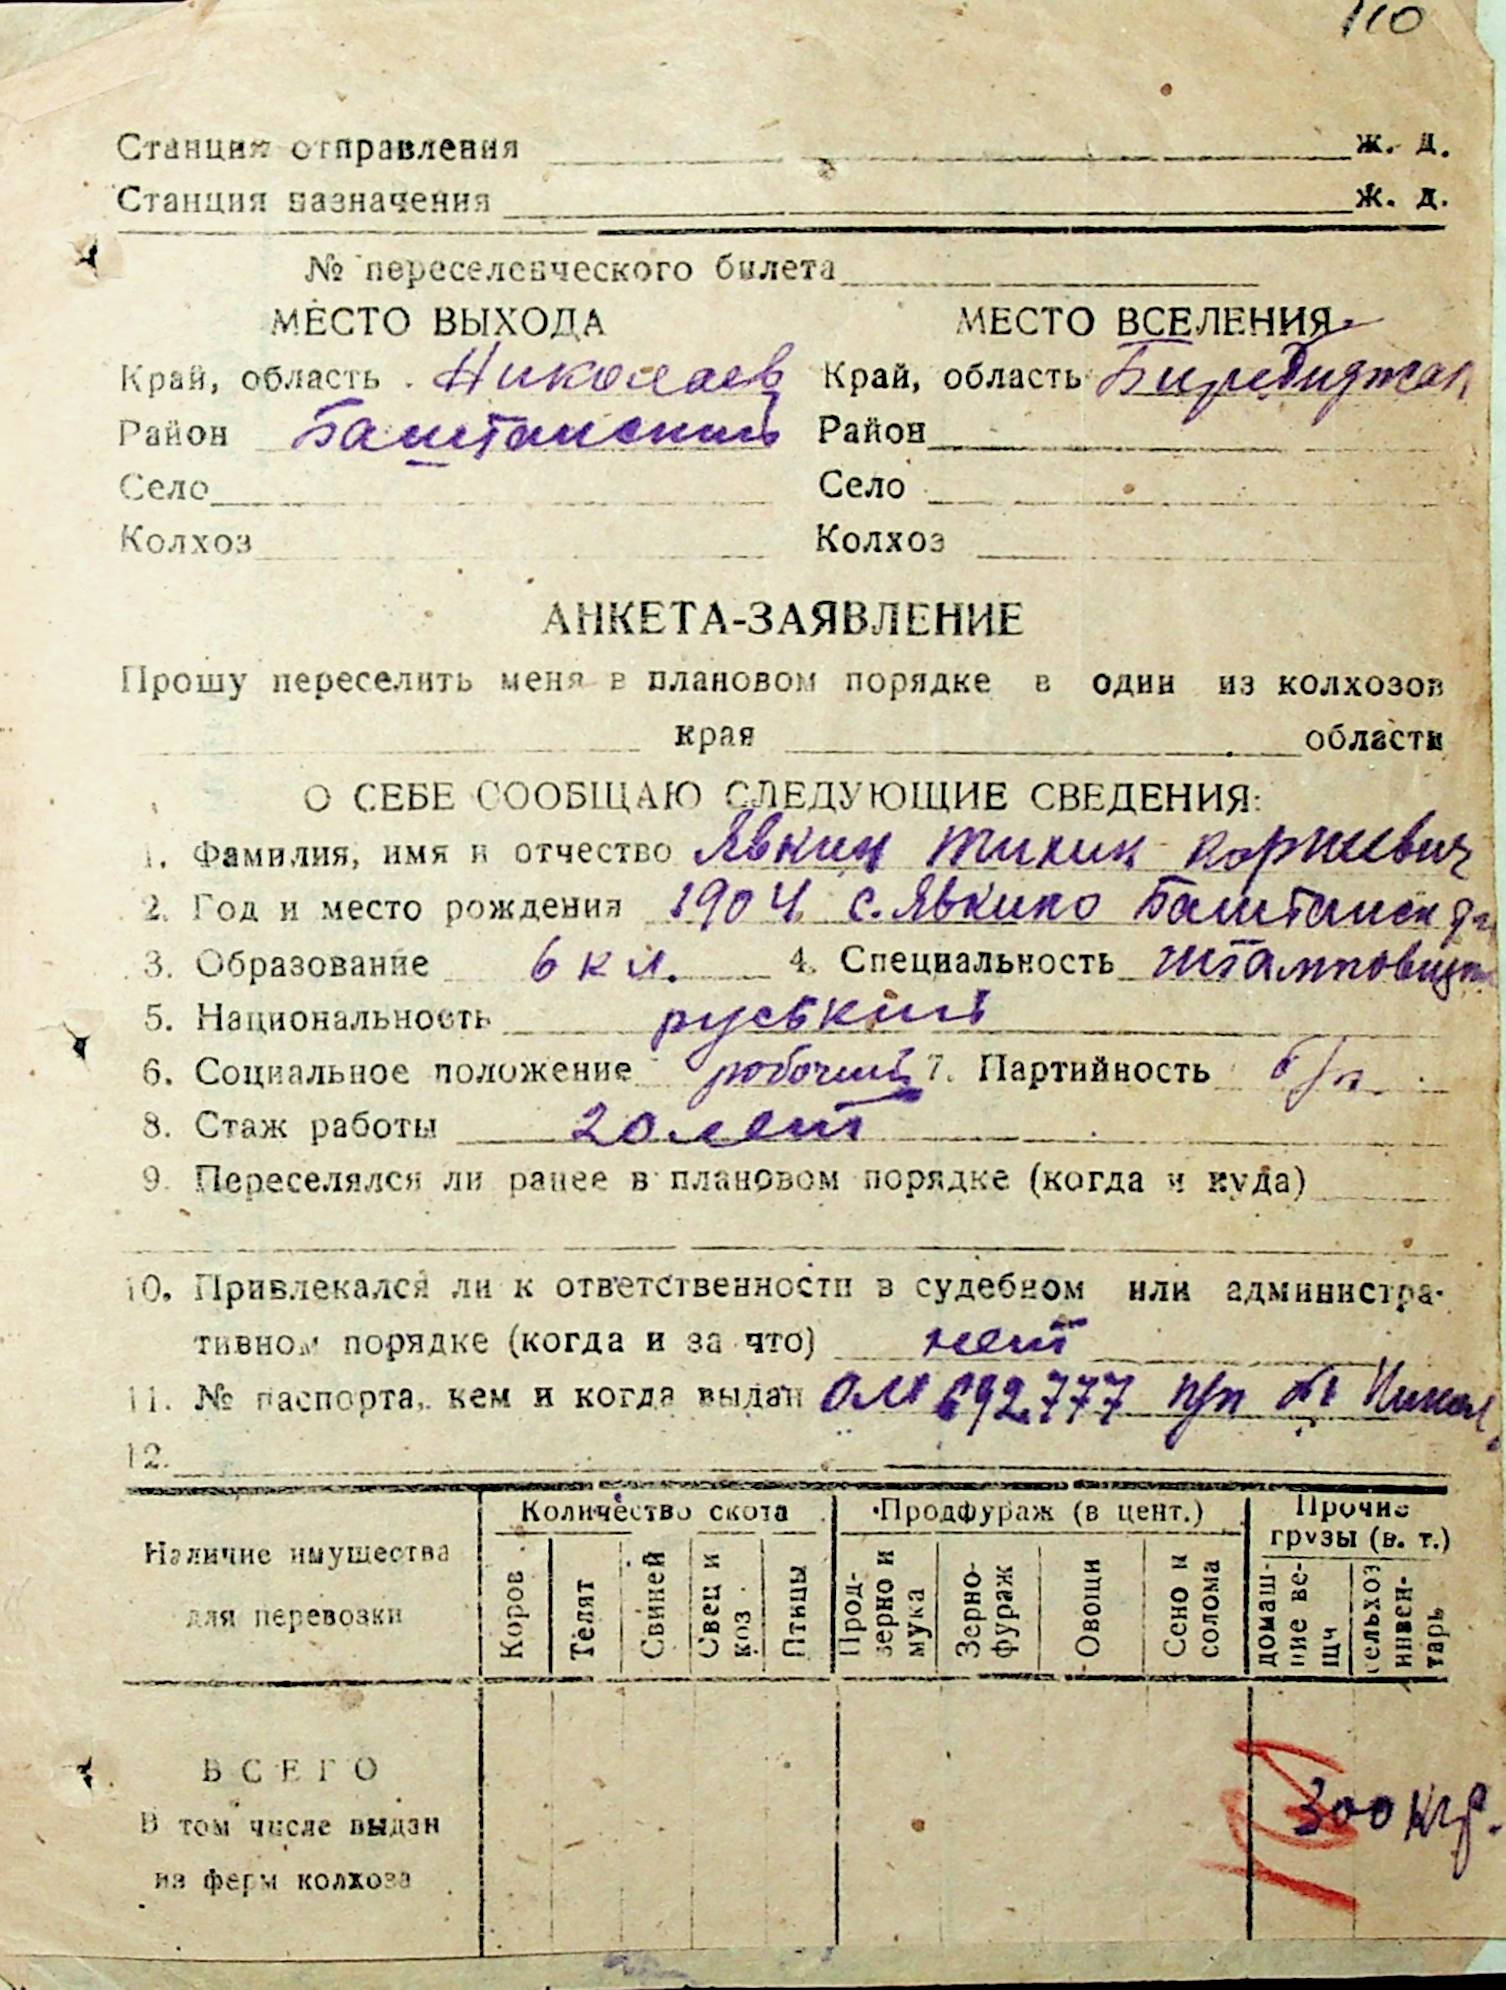 110
Станция отправления ж. д.
Станция назначения ж. д.
№ переселенческого билета
МЕСТО ВЫХОДА МЕСТО ВСЕЛЕНИЯ
Край, область Николаев Край, область Биребиджан
Район Баштанский Район
Село Село
Колхоз Колхоз
АНКЕТА-ЗАЯВЛЕНИЕ
Прошу переселить меня в плановом порядке в один из колхозов
края области
О СЕБЕ СООБЩАЮ СЛЕДУЮЩИЕ СВЕДЕНИЯ:
1. Фамилия, имя и отчество Явкин Тихин Корниевич
2. Год и место рождения 1904 с. Явкино Баштанск
3. Образование 6 кл. 4. Специальность Штамповщик
5. Национальность руський
6. Социальное положение робочий 7. Партийность б/п
8. Стаж работы 20 лет
9. Переселялся ли ранее в плановом порядке (когда и куда)
10. Привлекался ли к ответственности в судебном или администра-
тивном порядке (когда и за что) нет
11. № паспорта, кем и когда выдан 692777
12.
Наличие имущества для перевозки
Количество скота
Коров
Телят
Свиней
Овец и коз
Птицы
Продфураж (в цент.)
Прод-зерно и мука
Зерно-фураж
Овощи
Сено и солома
Прочие грузы (в. т.)
домаш-ние ве-щи
сельхоз инвен-тарь
ВСЕГО
300 кгр.
В том числе выдан
из ферм колхоза